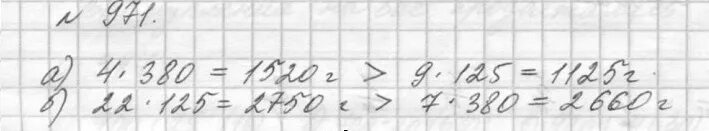 № 971.
а) 4 · 380 = 1520 г > 9 · 125 = 1125 г.
б) 22 · 125 = 2750 г > 7 · 380 = 2660 г